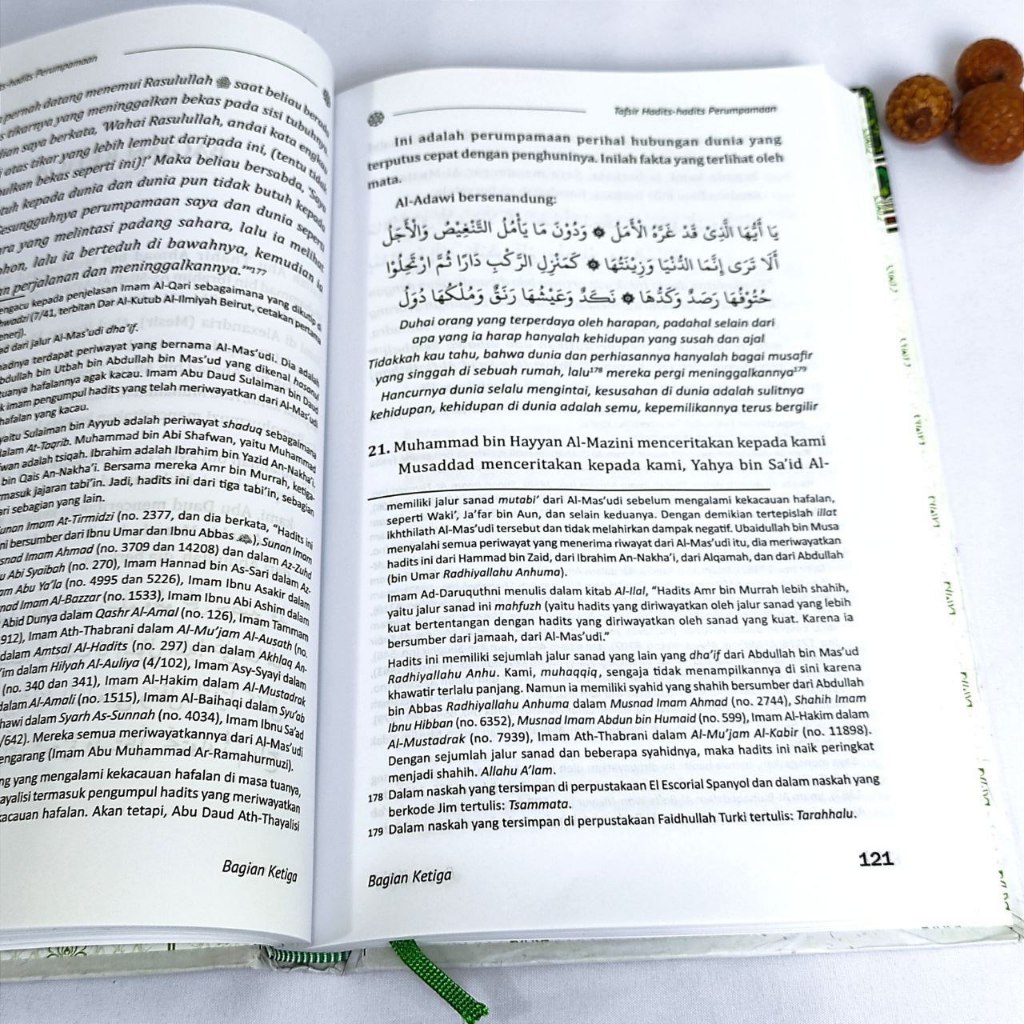 Hadits-hadits Perumpamaan
pernah datang menemui Rasulullah ﷺ saat beliau berada
tikarnya yang meninggalkan bekas pada sisi tubuhnya
saya berkata, 'Wahai Rasulullah, andai kata engkau
atas tikar yang lebih lembut daripada ini, (tentu tidak
bekas seperti ini)!' Maka beliau bersabda, 'Saya
kepada dunia dan dunia pun tidak butuh kepada
sesungguhnya perumpamaan saya dan dunia seperti
yang melintasi padang sahara, lalu ia melihat
lalu ia berteduh di bawahnya, kemudian ia
perjalanan dan meninggalkannya.'"¹⁷⁷
kepada penjelasan Imam Al-Qari sebagaimana yang dikutip di
(7/41, terbitan Dar Al-Kutub Al-Ilmiyah Beirut, cetakan pertama
dari jalur Al-Mas'udi dha'if.
terdapat periwayat yang bernama Al-Mas'udi. Dia adalah
bin Utbah bin Abdullah bin Mas'ud yang dikenal
hafalannya agak kacau. Imam Abu Daud Sulaiman bin Daud
imam pengumpul hadits yang telah meriwayatkan dari Al-Mas'udi
hafalan yang kacau.
yaitu Sulaiman bin Ayyub adalah periwayat shaduq sebagaimana
dalam At-Taqrib. Muhammad bin Abi Shafwan, yaitu Muhammad
adalah tsiqah. Ibrahim adalah Ibrahim bin Yazid An-Nakha'i.
bin Qais An-Nakha'i. Bersama mereka Amr bin Murrah, ketiga-
jajaran tabi'in. Jadi, hadits ini dari tiga tabi'in, sebagian
sebagian yang lain.
Sunan Imam At-Tirmidzi (no. 2377, dan dia berkata, "Hadits ini
bersumber dari Ibnu Umar dan Ibnu Abbas), Sunan Imam
Musnad Imam Ahmad (no. 3709 dan 14208) dan dalam Az-Zuhd
Abi Syaibah (no. 270), Imam Hannad bin As-Sari dalam Az-
Abu Ya'la (no. 4995 dan 5226), Imam Ibnu Asakir dalam
Imam Al-Bazzar (no. 1533), Imam Ibnu Abi Ashim dalam
Abid Dunya dalam Qashr Al-Amal (no. 126), Imam Tammam
912), Imam Ath-Thabrani dalam Al-Mu'jam Al-Ausath (no.
dalam Amtsal Al-Hadits (no. 297) dan dalam Akhlaq An-
dalam Hilyah Al-Auliya (4/102), Imam Asy-Syayi dalam
(no. 340 dan 341), Imam Al-Hakim dalam Al-Mustadrak
Al-Amali (no. 1515), Imam Al-Baihaqi dalam Syu'ab
dalam Syarh As-Sunnah (no. 4034), Imam Ibnu Sa'ad
/642). Mereka semua meriwayatkannya dari Al-Mas'udi
pengarang (Imam Abu Muhammad Ar-Ramahurmuzi).
yang mengalami kekacauan hafalan di masa tuanya,
termasuk pengumpul hadits yang meriwayatkan
hafalan. Akan tetapi, Abu Daud Ath-Thayalisi
Bagian Ketiga
Tafsir Hadits-hadits Perumpamaan
Ini adalah perumpamaan perihal hubungan dunia yang
terputus cepat dengan penghuninya. Inilah fakta yang terlihat oleh
mata.
Al-Adawi bersenandung:
يَا أَيُّهَا الَّذِيْ قَدْ غَرَّهُ الْأَمَلُ ۞ وَدُوْنَ مَا يَأْمُلُ التَّنْغِيْصُ وَالْأَجَلُ
أَلَا تَرَى إِنَّمَا الدُّنْيَا وَزِيْنَتُهَا ۞ كَمَنْزِلِ الرَّكْبِ دَارًا ثُمَّ ارْتَحِلُوْا
حُتُوْفُهَا رَصَدٌ وَكَدُّهَا ۞ نَكَدٌ وَعَيْشُهَا رَنَقٌ وَمُلْكُهَا دُوَلُ
Duhai orang yang terperdaya oleh harapan, padahal selain dari
apa yang ia harap hanyalah kehidupan yang susah dan ajal
Tidakkah kau tahu, bahwa dunia dan perhiasannya hanyalah bagai musafir
yang singgah di sebuah rumah, lalu¹⁷⁸ mereka pergi meninggalkannya¹⁷⁹
Hancurnya dunia selalu mengintai, kesusahan di dunia adalah sulitnya
kehidupan, kehidupan di dunia adalah semu, kepemilikannya terus bergilir
21. Muhammad bin Hayyan Al-Mazini menceritakan kepada kami
Musaddad menceritakan kepada kami, Yahya bin Sa'id Al-
memiliki jalur sanad mutabi' dari Al-Mas'udi sebelum mengalami kekacauan hafalan,
seperti Waki', Ja'far bin Aun, dan selain keduanya. Dengan demikian tertepislah illat
ikhthilath Al-Mas'udi tersebut dan tidak melahirkan dampak negatif. Ubaidullah bin Musa
menyalahi semua periwayat yang menerima riwayat dari Al-Mas'udi itu, dia meriwayatkan
hadits ini dari Hammad bin Zaid, dari Ibrahim An-Nakha'i, dari Alqamah, dan dari Abdullah
(bin Umar Radhiyallahu Anhuma).
Imam Ad-Daruquthni menulis dalam kitab Al-Ilal, "Hadits Amr bin Murrah lebih shahih,
yaitu jalur sanad ini mahfuzh (yaitu hadits yang diriwayatkan oleh jalur sanad yang lebih
kuat bertentangan dengan hadits yang diriwayatkan oleh sanad yang kuat. Karena ia
bersumber dari jamaah, dari Al-Mas'udi."
Hadits ini memiliki sejumlah jalur sanad yang lain yang dha'if dari Abdullah bin Mas'ud
Radhiyallahu Anhu. Kami, muhaqqiq, sengaja tidak menampilkannya di sini karena
khawatir terlalu panjang. Namun ia memiliki syahid yang shahih bersumber dari Abdullah
bin Abbas Radhiyallahu Anhuma dalam Musnad Imam Ahmad (no. 2744), Shahih Imam
Ibnu Hibban (no. 6352), Musnad Imam Abdun bin Humaid (no. 599), Imam Al-Hakim dalam
Al-Mustadrak (no. 7939), Imam Ath-Thabrani dalam Al-Mu'jam Al-Kabir (no. 11898).
Dengan sejumlah jalur sanad dan beberapa syahidnya, maka hadits ini naik peringkat
menjadi shahih. Allahu A'lam.
178 Dalam naskah yang tersimpan di perpustakaan El Escorial Spanyol dan dalam naskah yang
berkode Jim tertulis: Tsammata.
179 Dalam naskah yang tersimpan di perpustakaan Faidhullah Turki tertulis: Tarahhalu.
Bagian Ketiga
121